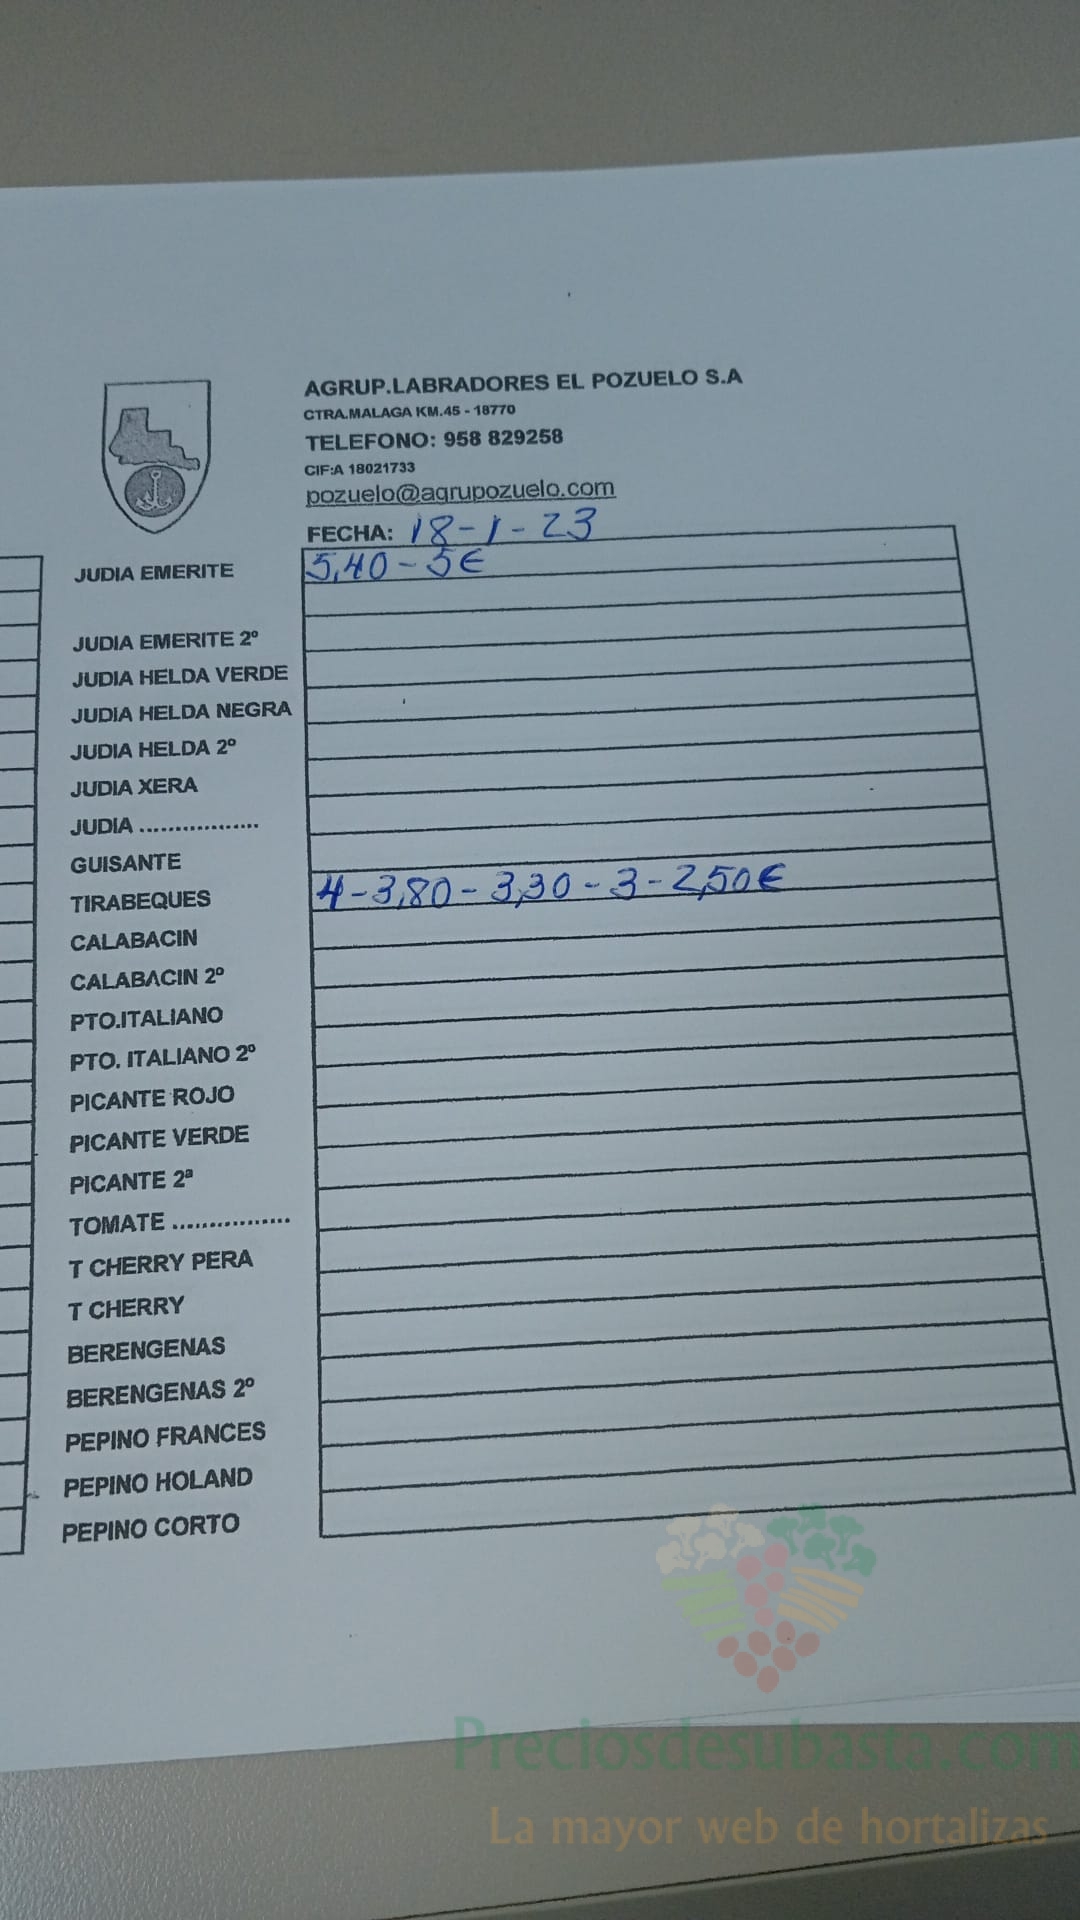 AGRUP.LABRADORES EL POZUELO S.A
CTRA.MALAGA KM.45 - 18770
TELEFONO: 958 829258
CIF:A 18021733
pozuelo@agrupozuelo.com
FECHA: 18-1-23
JUDIA EMERITE 5,40-5€
JUDIA EMERITE 2º
JUDIA HELDA VERDE
JUDIA HELDA NEGRA
JUDIA HELDA 2º
JUDIA XERA
JUDIA .................
GUISANTE
TIRABEQUES 4-3,80-3,30-3-2,50€
CALABACIN
CALABACIN 2º
PTO.ITALIANO
PTO. ITALIANO 2º
PICANTE ROJO
PICANTE VERDE
PICANTE 2ª
TOMATE ................
T CHERRY PERA
T CHERRY
BERENGENAS
BERENGENAS 2º
PEPINO FRANCES
PEPINO HOLAND
PEPINO CORTO
Preciosdesubasta.com
La mayor web de hortalizas